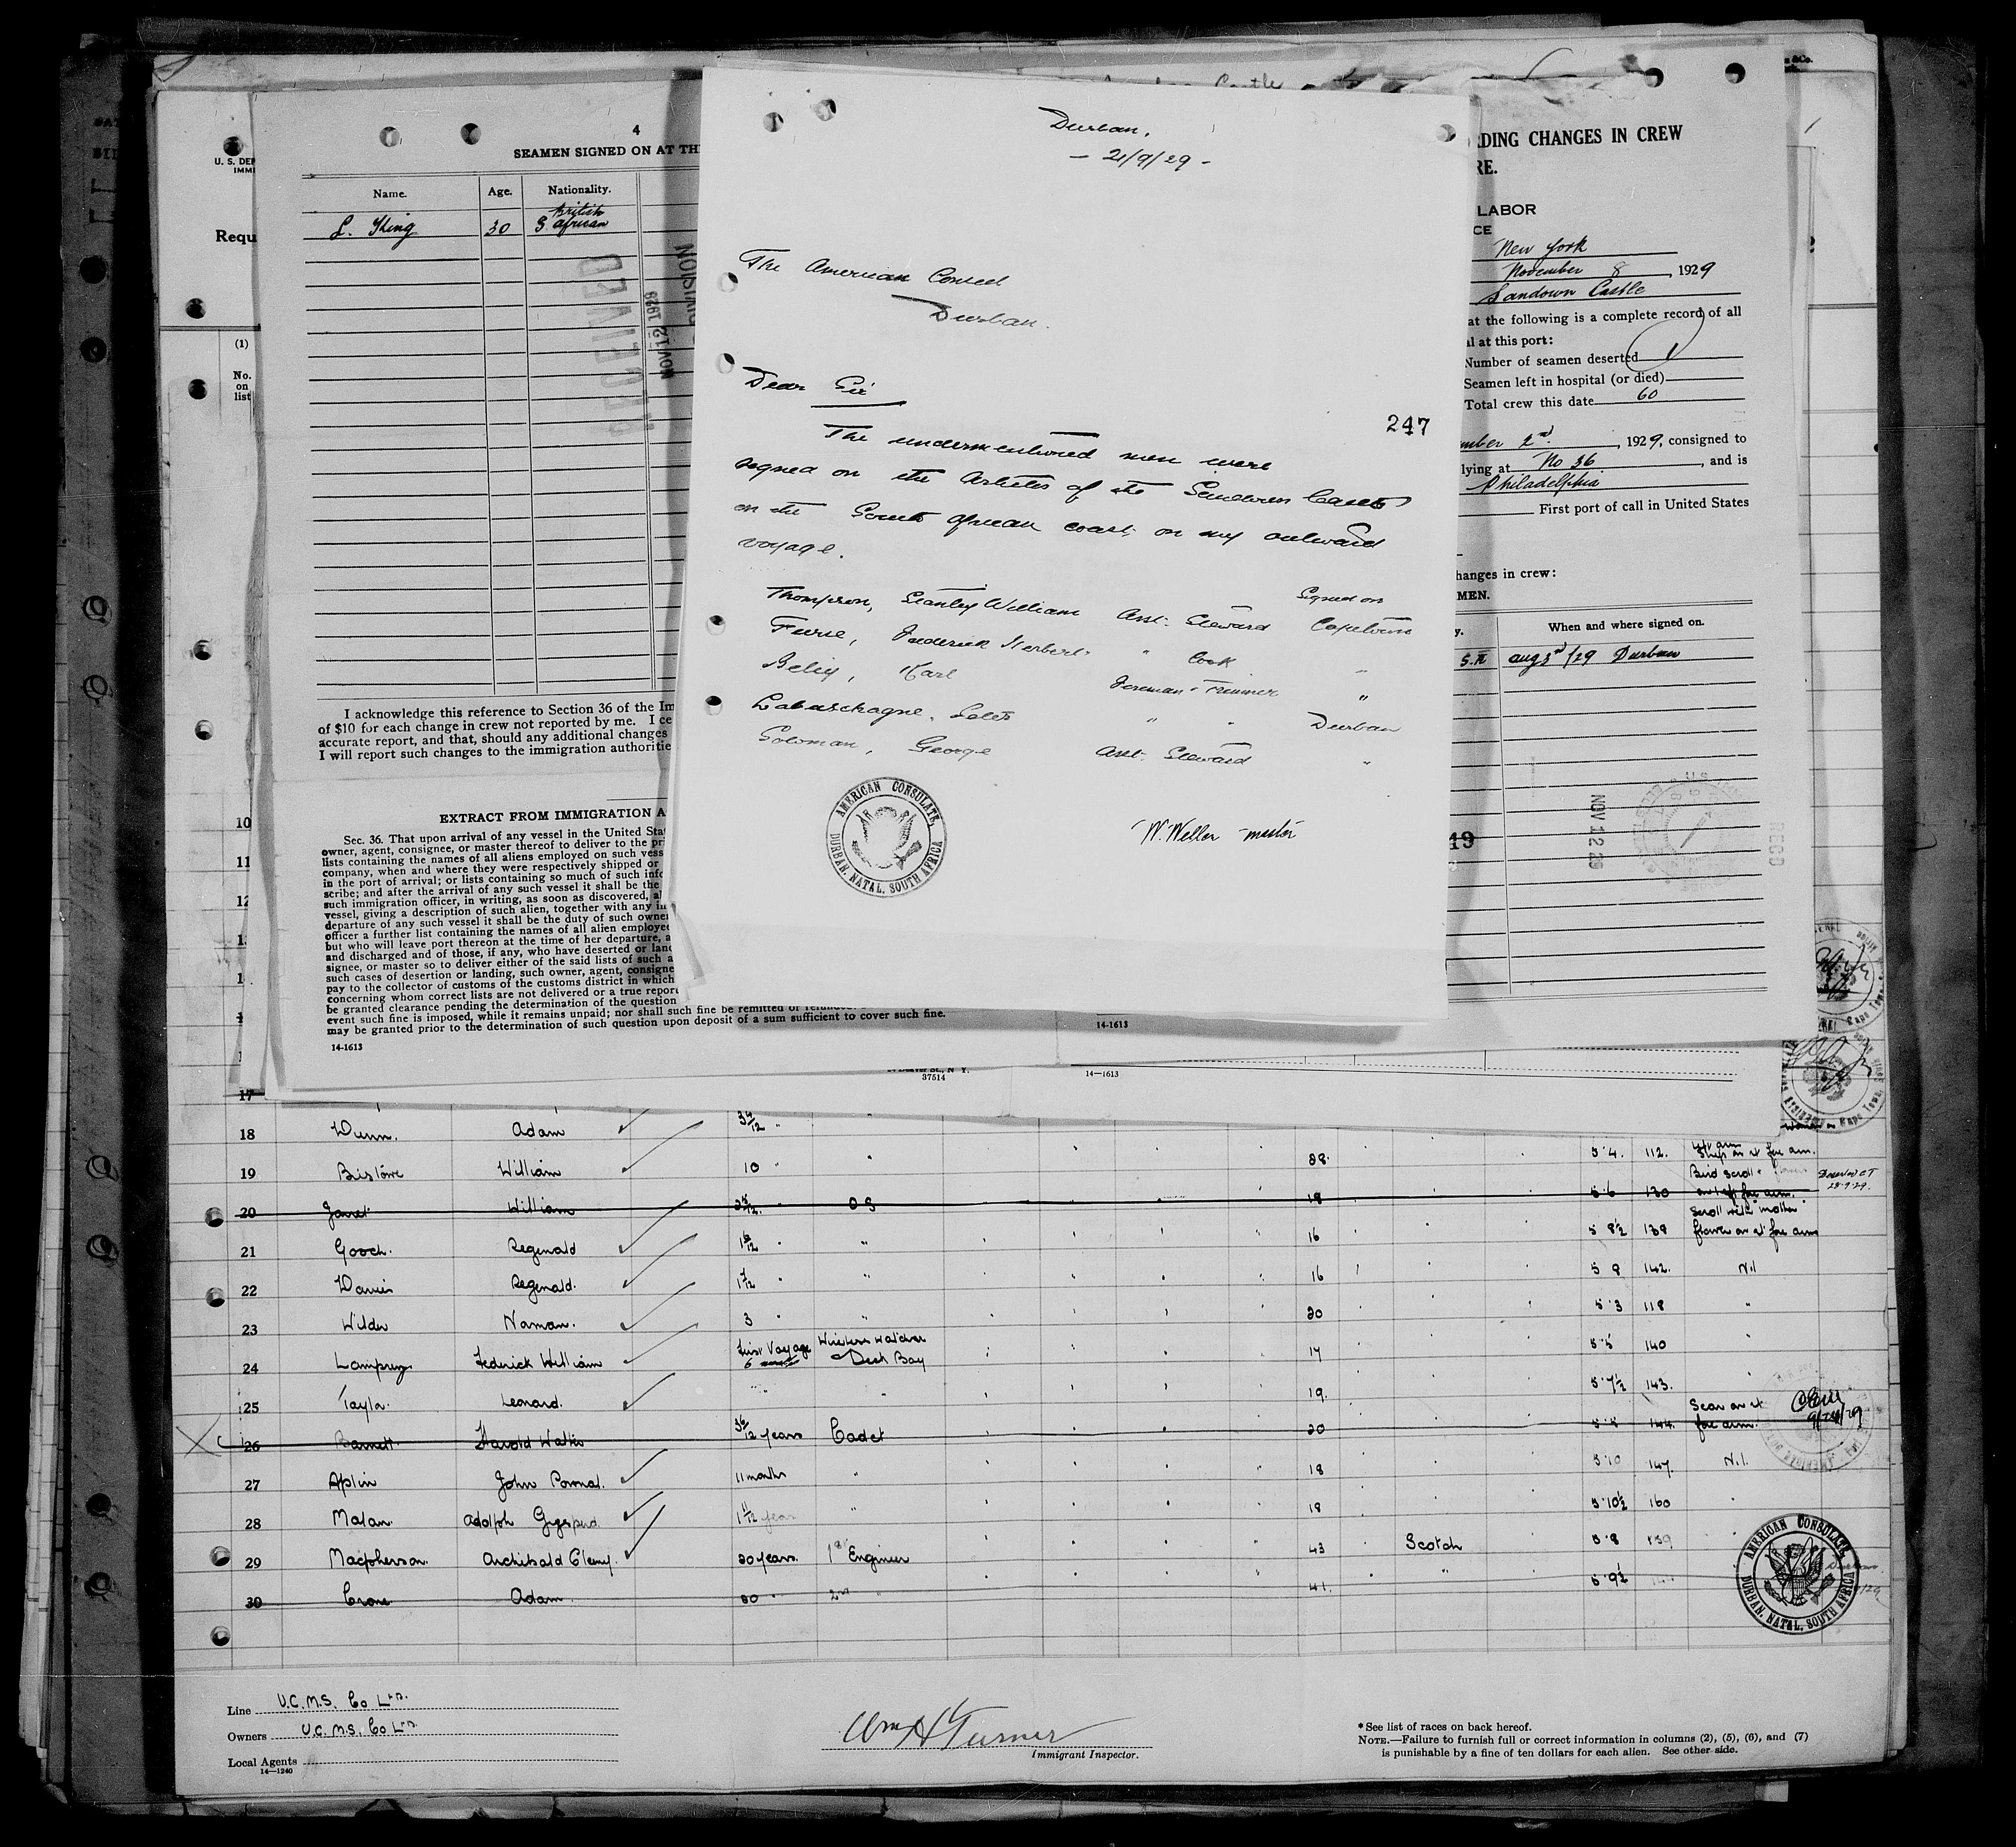 4
SEAMEN SIGNED ON AT TH
Name. Age. Nationality.
British
30 S. African
RECEIVED
NOV 12 1929
DIVISION
U. S. DEP
IMMI
Requ
(1)
No.
on
list
I acknowledge this reference to Section 36 of the Im
of $10 for each change in crew not reported by me. I ce
accurate report, and that, should any additional changes
I will report such changes to the immigration authoritie
EXTRACT FROM IMMIGRATION A
Sec. 36. That upon arrival of any vessel in the United Sta
owner, agent, consignee, or master thereof to deliver to the pri
lists containing the names of all aliens employed on such vess
company, when and where they were respectively shipped or
in the port of arrival; or lists containing so much of such info
scribe; and after the arrival of any such vessel it shall be the
such immigration officer, in writing, as soon as discovered, al
vessel, giving a description of such alien, together with any in
departure of any such vessel it shall be the duty of such owner
officer a further list containing the names of all alien employee
but who will leave port thereon at the time of her departure, a
and discharged and of those, if any, who have deserted or land
signee, or master so to deliver either of the said lists of such a
such cases of desertion or landing, such owner, agent, consigne
pay to the collector of customs of the customs district in which
concerning whom correct lists are not delivered or a true report
be granted clearance pending the determination of the question
event such fine is imposed, while it remains unpaid; nor shall such fine be remitted or refunded
may be granted prior to the determination of such question upon deposit of a sum sufficient to cover such fine.
14-1613
Durban.
- 21/9/29 -
The American Consul
Durban.
Dear Sir
247
The undermentioned men were
signed on the Articles of the Sandown Castle
on the South African coast, on my outward
voyage.
Signed on
Thompson, Stanley William Asst. Steward Capetown
Furse, Frederick Herbert " Cook "
Karl Fireman & Trimmer "
Labuschagne, " " Durban
Soloman, George Asst. Steward "
AMERICAN CONSULATE,
DURBAN, NATAL, SOUTH AFRICA
W. Weller master
RDING CHANGES IN CREW
RE.
LABOR
CE
New York
November 8, 1929
Sandown Castle
at the following is a complete record of all
al at this port:
Number of seamen deserted 1
Seamen left in hospital (or died)
Total crew this date 60
mber 2nd, 1929, consigned to
lying at No 36, and is
Philadelphia
First port of call in United States
hanges in crew:
MEN.
y. When and where signed on.
Aug 3rd/29 Durban
NOV 12 29
REC'D
19
14-1613
37514
14—1613
10
11
12
17
18 Dunn. Adam
19 Bistowe William 10 " 38 5.4. 112.
20 Jarret William OS 18 5.6 130
21 Gooch. Reginald 16 5 8½ 138
Scroll with mother
flower on lt fore arm
22 Davies Reginald. 16 5 8 142. Nil
23 Wilder Norman. 3 20 5.3 118 "
24 Lamprey Federick William First Voyage Wireless watcher Deck Boy 17 5.5 140 "
25 Taylor Leonard. 19. 5.7½ 143. "
26 Barnett Harold Walter years Cadet 20 144. Scar on lt fore arm.
9/24/29
27 Aplin John 11 months " 18 5.10 147. Nil.
28 Malan. Adolph year " 18 5.10½ 160 "
29 Macpherson. Archibald 20 years. 1st Engineer 43 Scotch 5.8 159 "
30 Crone Adam 2nd " 41. " 5.9½
AMERICAN CONSULATE,
DURBAN, NATAL, SOUTH AFRICA
Line U.C.M.S. Co Ltd.
Owners U.C.M.S. Co Ltd.
Local Agents
14—1240
Wm H Turner
Immigrant Inspector.
* See list of races on back hereof.
NOTE.—Failure to furnish full or correct information in columns (2), (5), (6), and (7)
is punishable by a fine of ten dollars for each alien. See other side.